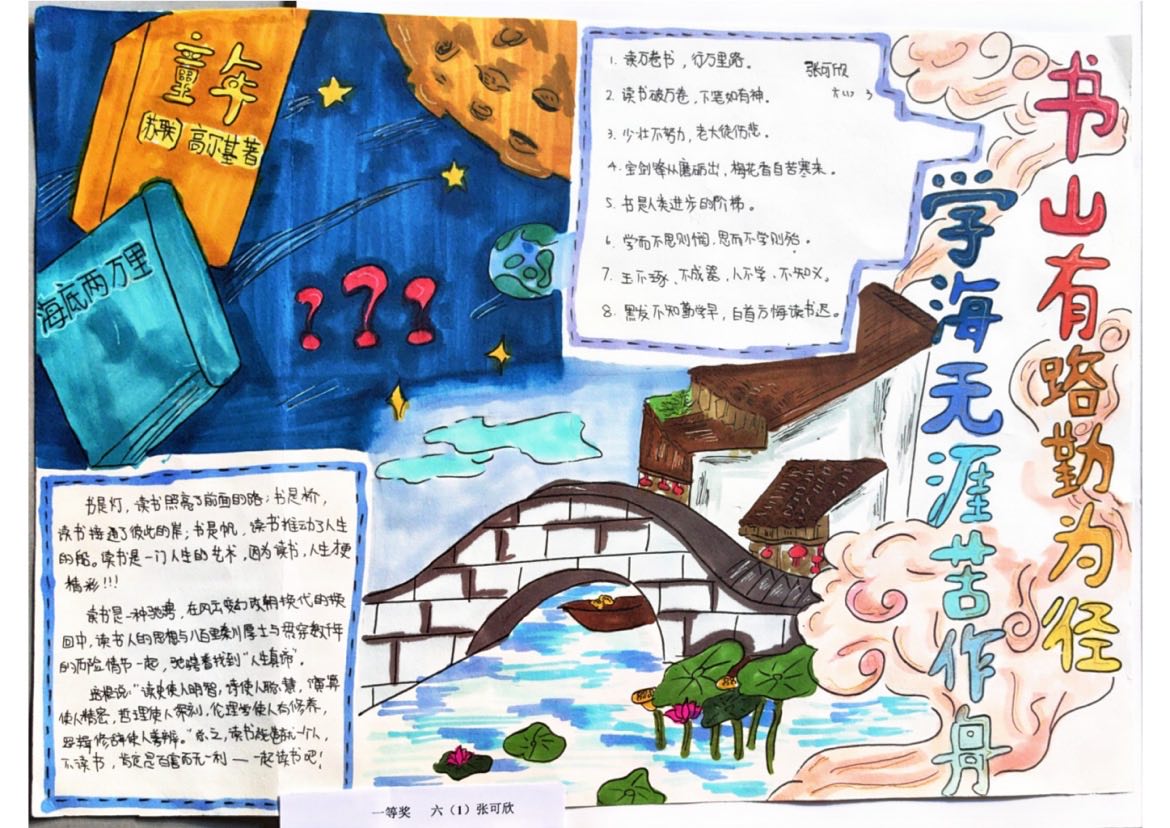 书山有路勤为径
学海无涯苦作舟
童年
苏联 高尔基著
海底两万里
???
1. 读万卷书，行万里路。
张可欣
六(1)
2. 读书破万卷，下笔如有神。
3. 少壮不努力，老大徒伤悲。
4. 宝剑锋从磨砺出，梅花香自苦寒来。
5. 书是人类进步的阶梯。
6. 学而不思则惘，思而不学则殆。
7. 玉不琢、不成器，人不学，不知义。
8. 黑发不知勤学早，白首方悔读书迟。
书是灯，读书照亮了前面的路；书是桥，
读书接通了彼此的岸；书是帆，读书推动了人生
的船。读书是一门人生的艺术，因为读书，人生才更
精彩!!!
读书是一种驰骋，在风云变幻改朝换代的换
回中，读书人的思想与八百里秦川厚土与贯穿数千年
的历险情节一起，驰骋着找到“人生真谛”。
培根说：“读史使人明智，诗使人聪慧，演算
使人精密，哲理使人深刻，伦理学使人有修养，
逻辑修辞使人善辩。”总之，读书能
不读书，肯定是百害而无一利——一起读书吧！
一等奖 六（1）张可欣